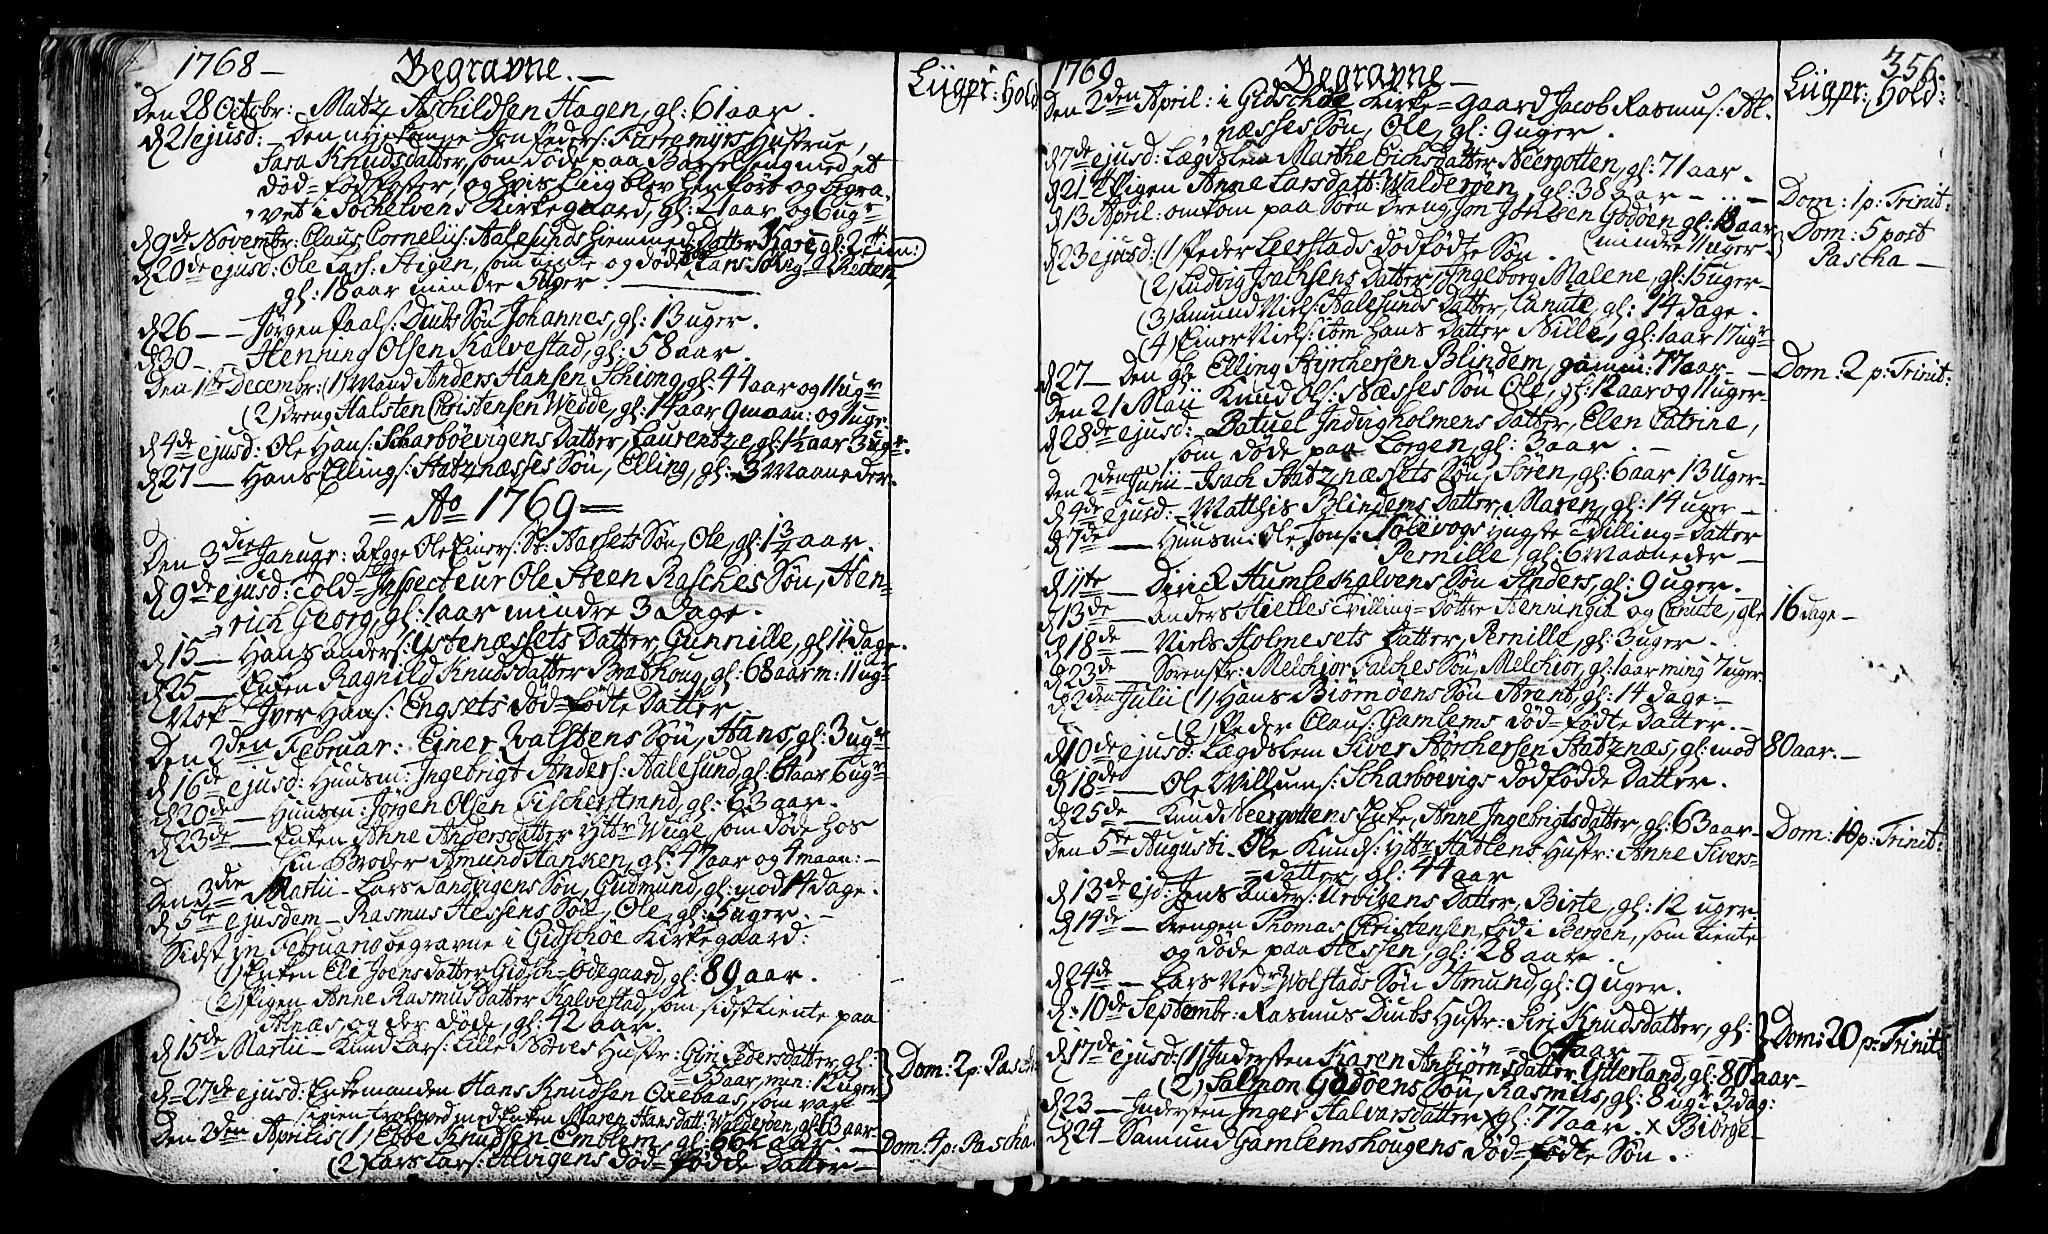 1768 – Begravne. – Liigpr: Hold
Den 28 Octobr: Matz Aschildsen Hagen, gl: 61 aar.
d 21 ejusd: Den nye Jon Peders: Farremyrs Hustrue,
Sara Knudsdatter, som døde paa Barselseng med et
død-født foster, og hvis Liig blev henført og begra-
vet i Søchelvens Kirkegaard, gl: 21 aar og 6 ugr
d 9de Novembr: Claus Cornelii: Aalesunds Datter Kare, gl: 2
d 20de ejusd: Ole Lars: Stigen, som tiente og døde Lars: Solvig=Reiten,
gl: 18 aar mindre 5 uger.
d 26 – Jørgen Paals: Diubs Søn Johannes, gl: 13 uger.
d 30 – Henning Olsen Kalvestad, gl: 58 aar.
Den 1te Decembr: (1) Mand Anders Hansen Schiong, gl: 44 aar og 11 ugr
(2) Dreng Halsten Christensen Wedde, gl: 14 aar 9 maan: og 1 ugr
d 4de ejusd: Ole Hans: Scharbøevigens Datter, Laurentze, gl: 1½ aar 3 ugr.
d 27 – Hans Ellings: Statznæsses Søn, Elling, gl: 3 Maaneder.
= Ao 1769 =
Den 3die Januar: Ole Einers: St: Aarsets Søn, Ole, gl: 1¾ aar.
d 9de ejusd: Told-Inspecteur Ole Steen Rasches Søn, Hen-
rich Georg, gl: 1 aar mindre 3 Dage.
d 15 – Hans Anders: Ystenæssets Datter, Gunnille, gl 11 dage.
d 25 – Enken Ragnild Knudsdatter Brathoug, gl: 68 aar m: 11 ugr
Nok – Iver Haas: Engsets død-fødte Datter
Den 2den Februar: Einer Qvalstens Søn, Hans, gl: 3 ugr
d 16de ejusd: Huusm: Ingebrigt Anders: Aalesund, gl: 61 aar 6 ugr
d 20de – Huusm: Jørgen Olsen Fischerstrand, gl: 63 aar.
d 23de – Enken Anne Andersdatter Yttr Wiige, som døde hos
sin Broder Amund Hanken, gl: 47 aar og 4 maan: –
Den 3die Martii – Lars Sandvigens Søn, Gudmund, gl: mod 14 dage.
d 5te ejusdem – Rasmus Hessens Søn, Ole, gl: 5 uger. –
Sidst in Februario begravne i Gidschøe Kirkegaard:
(1) Enken Eli Joensdatter Gidsch=Ødegaard, gl: 89 aar.
(2) Pigen Anne Rasmusdatter Kalvestad, som sidst tiente paa
Alnæs, og der døde, gl: 42 aar.
d 15de Martii – Knud Lars: Lille Nørves Hustr: Giøri Pedersdatter, gl:
53 aar, min: 12 uger } Dom: 2 p: Pasch
d 27de ejusd: Enkemanden Hans Knudsen Oxebaas, som var
igien trolovet med Enken Maren Hansdatt: Walderøen, gl: 63 aar
Den 2den Aprilis (1) Ebbe Knudsen Emblem, gl: 66½ aar – Dom: 4 p: Pascha
(2) Lars Lars: Alvigens død-fødde Datter –
1769 Begravne – Liigpr: Hold: 356.
Den 2den April: i Gidschøe Kirke-gaard Jacob Rasmus: Al-
næsses Søn, Ole, gl: 9 uger.
d 7de ejusd: Lægdslem Marthe Erichsdatter Neergotten, gl: 71 aar.
d 21 – Pigen Anne Larsdatt: Walderøen, gl: 38 aar – Dom: 1 p: Trinit:
d 13 April: omkom paa Søen Dreng Jon Johnsen Godøen gl: 18 aar
mindre 11 uger } Dom: 5 post Pascha –
d 23 ejusd: (1) Peder Leerstads dødfødte Søn.
(2) Ludvig Isachsens Datter, Ingeborg Malene, gl: 15 uger –
(3) Amund Niels: Aalesunds Datter, Canute, gl: 14 dage.
(4) Einer Niels: item hans Datter Nille, gl: 1 aar 17 ugr
d 27 – Den gl: Elling Styrchersen Blindem, gammel: 77 aar – Dom: 2 p: Trinit:
Den 21 Maij Knud Ols: Næsses Søn Ole, gl: 12 aar og 11 uger –
d 28de ejusd: Batuel Indvigholmens Datter, Elen Catrine,
som døde paa Lorgen, gl: 3 aar –
Den 2den Junii – Isach Statznæssets Søn, Søren, gl: 6 aar 13 Uger –
d 4de ejusd: – Matthis Blindems Datter, Maren, gl: 14 uger –
d 7de – Huusm: Ole Jons: Solevogs yngste Tvilling-Datter
Pernille, gl: 6 Maaneder –
d 11te – Dirich Humleskalvens Søn Anders, gl: 9 uger.
d 13de – Anders Hielles Tvilling-Døttre Henningia og Canute, gle 16 dage –
d 18de – Niels Holmesets Datter, Pernille, gl: 3 uger.
d 23de – Sorenskr: Melchior Falches Søn, Melchior, gl: 1 aar mind 7 uger
d 2den Julii (1) Hans Biørnøens Søn Arent, gl: 14 dage –
(2) Peder Claus: Gamlems død-fødte Datter –
d 10de ejusd: Lægdslem Siver Størchersen Statznæs, gl: mod 80 aar. –
d 18de – Ole Willums: Scharboevigs dødfødde Datter.
d 25de – Knud Neergottens Enke, Anne Ingebrigtsdatter, gl: 63 aar –
Den 5te Augusti – Ole Knuds: Yttr Hatlens Hustr: Anne Sivers-
datter, gl: 44 aar Dom: 10 p: Trinit:
d 13de ejd: Jens Anders: Urvigens Datter, Birte, gl: 12 uger
d 14de – Drengen Thomas Christensen, fød i Bergen, som tiente
og døde paa Hessen, gl: 28 aar
d 24de – Lars Nedr Wolstads Søn Amund, gl: 9 uger.
d: 10de Septembr: Rasmus Diubs Hustr: Siri Knudsdatter, gl:
64 aar } Dom: 20 p: Trinit:
d 17de ejusd: (1) Indersten Karen Ansiørnsdatter Ytterland, gl: 80 aar –
(2) Salmon Godøens Søn, Rasmus, gl: 8 ugr 3 dag:
d 23 – Indersten Inger Halvarsdatter x gl: 77 aar. x Biørge –
d 24 – Samund Gamlemshougens død-fødte Søn.